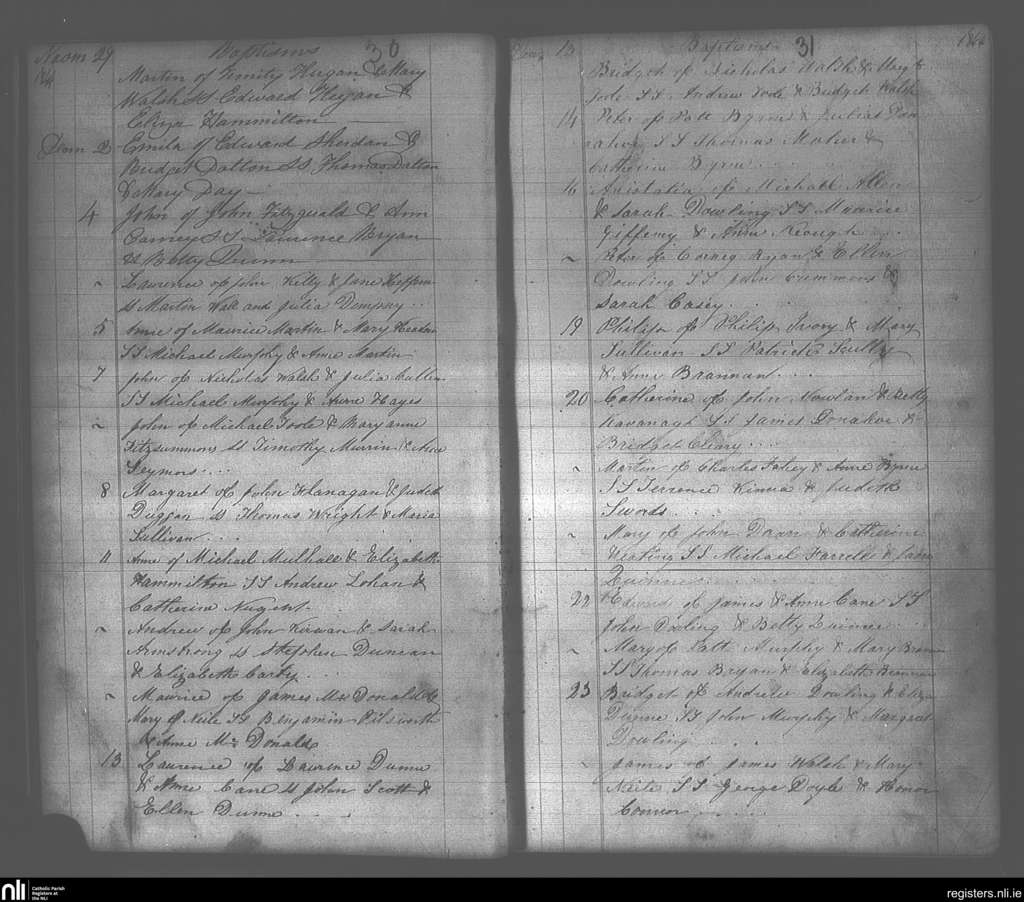 Baptisms 30
Martin of Timity Hugan & Mary
Walsh SS Edward Hegan &
Eliza Hammilton
2 Emila of Edward Sheridan &
Bridget Dalton SS Thomas Dalton
& Mary Day
4 John of John Fitzgerald & Ann
SS Laurence Bryan
& Betty Dunn
~ Laurence of John Kelly & Jane
SS Martin Wall and Julia Dempsey
5 Anne of Maurice Martin & Mary
SS Michael Murphy & Anne Martin
7 John of Nicholas Walsh & Julia Cullen
SS Michael Murphy & Anne Hayes
~ John of Michael Toole & Mary anne
Fitzsummons SS Timothy Murrin &
Seymors
8 Margaret of John Flanagan & Judith
Duggan SS Thomas Wright & Maria
Sullivan
11 Anne of Michael Mulhall & Elizabeth
Hammilton SS Andrew Lohan &
Catherine Nugent
~ Andrew of John Kirwan & Sarah
Armstrong SS Stephen Duncan
& Elizabeth Carty
~ Maurice of James Mc Donald &
Mary O Neile SS Benjamin Pilsworth
& Anne Mc Donald
13 Laurence of Laurence Dunne
& Anne Cane SS John Scott &
Ellen Dunne
13 Baptisms 31
Bridget of Nicholas Walsh &
SS Andrew & Bridget Walsh
14 Peter of Patt Byrne &
SS Thomas Maher &
Catherine Byrne
16 Anistatia of Michael Allen
& Sarah Dowling SS Maurice
& Anne Keough
~ Peter of Ryan & Ellen
Dowling SS John Cummons &
Sarah Casey
19 Philip of Philip Ivory & Mary
Sullivan SS Patrick Scully
& Anne Brannan
20 Catherine of John Nowlan & Betty
Kavanagh SS James Donahoe &
Bridget Cleary
~ Martin of Charles Fahey & Anne Byrne
SS Terrence Kinna & Judith
Swords
~ Mary of John & Catherine
Keating SS Michael Farrell &
Quinne
22 Edward of James & Anne Cane SS
John & Betty Quinne
~ Mary of Patt Murphy & Mary
SS Thomas Bryan & Elizabeth Brennan
23 Bridget of Andrew Dowling & Eliza
Dunne SS John Murphy & Margaret
Dowling
~ James of James Walsh & Mary
Neile SS George Doyle & Honor
Connor
nli Catholic Parish
Registers at
the NLI
registers.nli.ie